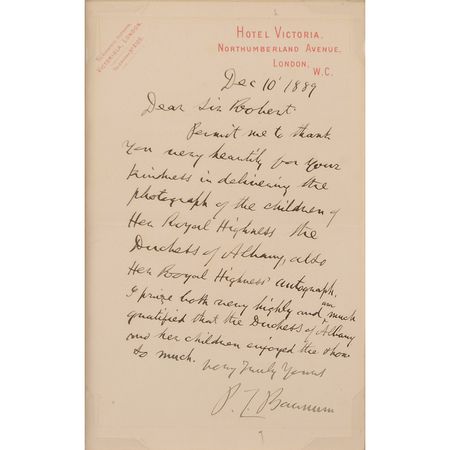 Telegraphic Address,
Victoriola, London.
Hotel Victoria.
Northumberland Avenue.
London,
W.C.
Dec 10' 1889
Dear Sir Robert
Permit me to thank
you very heartily for your
kindness in delivering the
photograph of the children of
Her Royal Highness the
Duchess of Albany, also
Her Royal Highness' autograph.
I prize both very highly and am much
gratified that the Duchess of Albany
and her children enjoyed the show
so much.
Very Truly Yours
P. T. Barnum